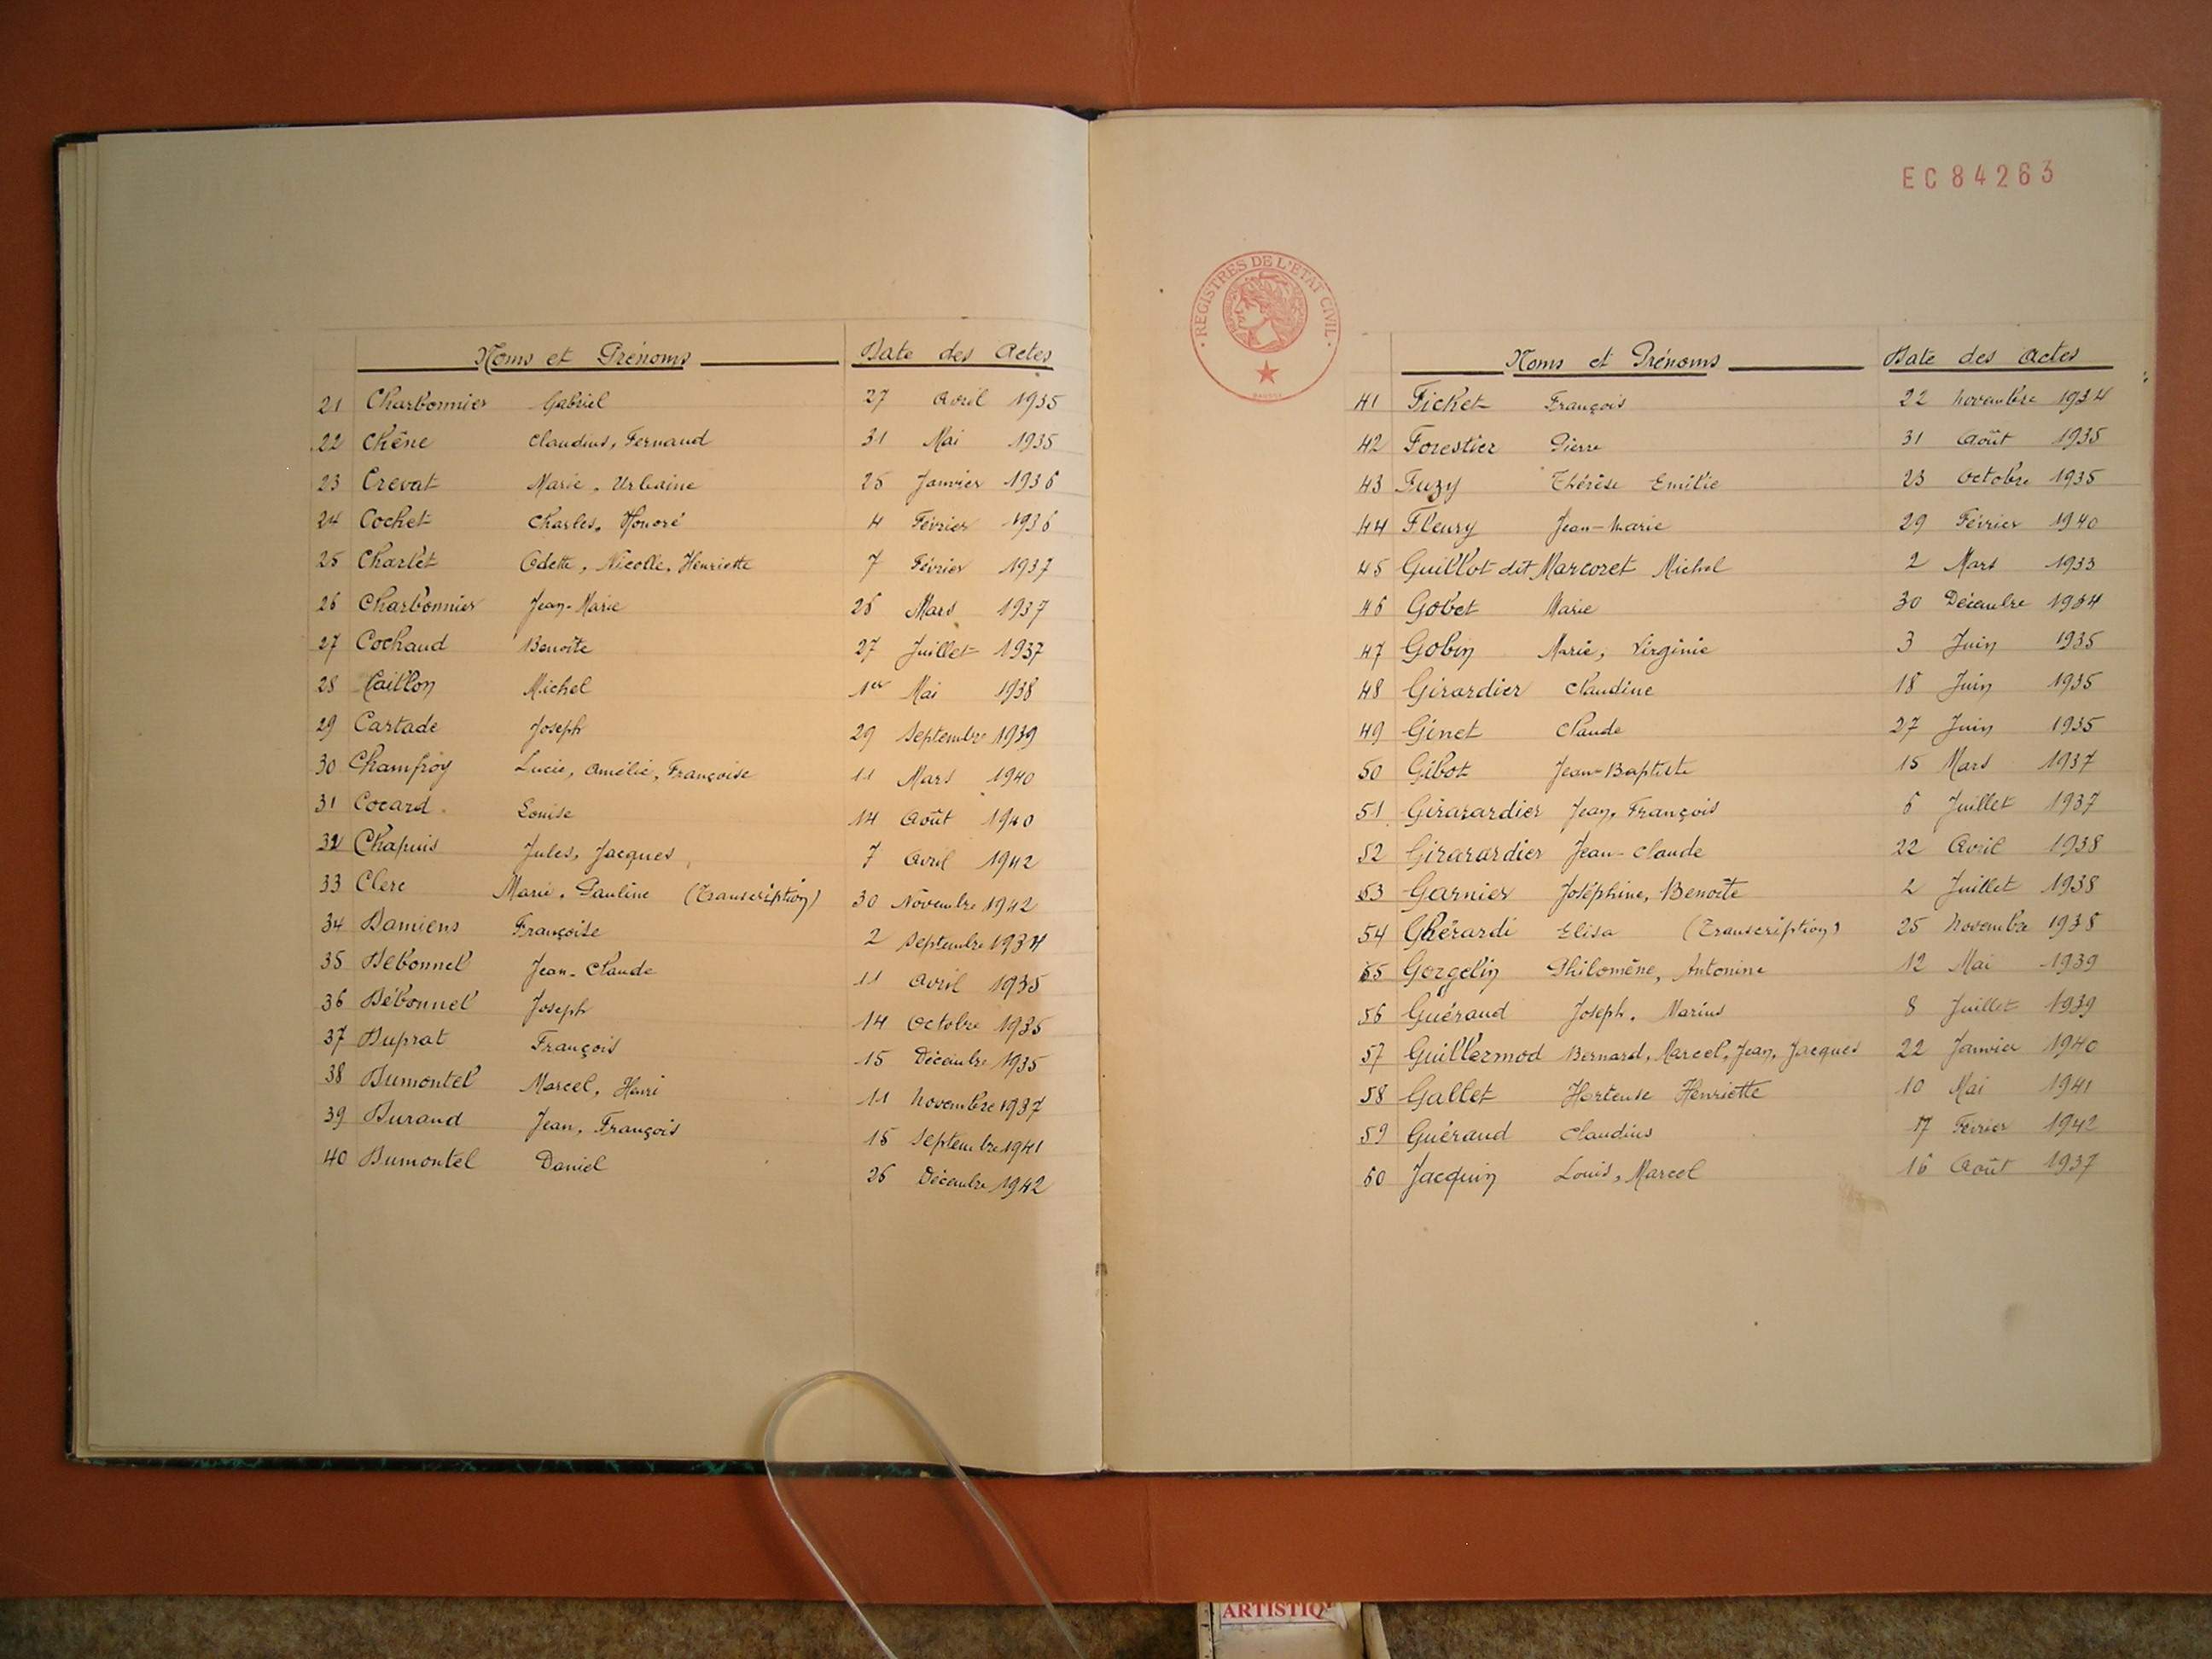 Noms et Prénoms Date des Actes
21 Charbonnier Gabriel 27 Avril 1935
22 Chêne Claudius, Fernand 31 Mai 1935
23 Crevat Marie, Urbaine 25 Janvier 1936
24 Cochet Charles, Honoré 4 Février 1936
25 Charlet Odette, Nicolle, Henriette 7 Février 1937
26 Charbonnier Jean-Marie 26 Mars 1937
27 Cochaud Benoîte 27 Juillet 1937
28 Caillon Michel 1er Mai 1938
29 Cartade Joseph 29 Septembre 1939
30 Chamfroy Lucie, Amélie, Françoise 11 Mars 1940
31 Cocard Louise 14 Août 1940
32 Chapuis Jules, Jacques 7 Avril 1942
33 Clerc Marie, Pauline (Transcription) 30 Novembre 1942
34 Damiens Françoise 2 Septembre 1934
35 Débonnel Jean-Claude 11 Avril 1935
36 Débonnel Joseph 14 Octobre 1935
37 Duprat François 15 Décembre 1935
38 Dumontel Marcel, Henri 11 Novembre 1937
39 Durand Jean, François 15 Septembre 1941
40 Dumontel Daniel 26 Décembre 1942
EC84263
REGISTRES DE L'ETAT CIVIL
Noms et Prénoms Date des Actes
41 Ficket François 22 Novembre 1934
42 Forestier Pierre 31 Août 1935
43 Fuzy Thérèse Emilie 23 Octobre 1935
44 Fleury Jean-Marie 29 Février 1940
45 Guillot dit Marcoret Michel 2 Mars 1933
46 Gobet Marie 30 Décembre 1934
47 Gobin Marie, Virginie 3 Juin 1935
48 Girardier Claudine 18 Juin 1935
49 Ginet Claude 27 Juin 1935
50 Gibot Jean-Baptiste 15 Mars 1937
51 Girarardier Jean, François 6 Juillet 1937
52 Girarardier Jean-Claude 22 Avril 1938
53 Garnier Joséphine, Benoîte 2 Juillet 1938
54 Ghérardi Elisa (Transcription) 25 Novembre 1938
55 Gorgelin Philomène, Antonine 12 Mai 1939
56 Guéraud Joseph, Marius 8 Juillet 1939
57 Guillermod Bernard, Marcel, Jean, Jacques 22 Janvier 1940
58 Gallet Hortense Henriette 10 Mai 1941
59 Guéraud Claudius 17 Février 1942
60 Jacquin Louis, Marcel 16 Août 1937